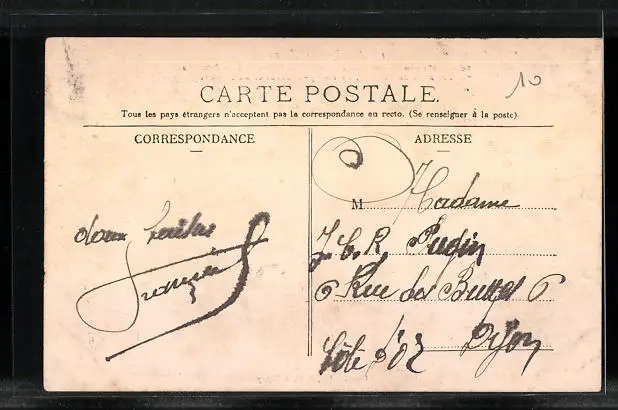 10
CARTE POSTALE.
Tous les pays étrangers n'acceptent pas la correspondance au recto. (Se renseigner à la poste).
CORRESPONDANCE
ADRESSE
M Madame
doux
6 Rue des Buttes 6
Dijon
Côte d'Or